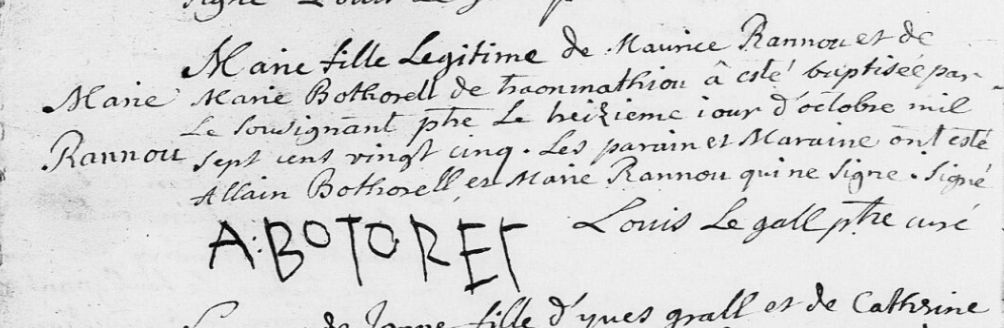 signé Louis Le gall p
Marie fille Legitime de Maurice Rannou et de
Marie Marie Bothorell de traonmathiou â esté baptisée par
Le sousignant ptre Le treizieme iour d'octobre mil
Rannou sept cens vingt cinq. Les parain et Maraine ont esté
Allain Bothorell et Marie Rannou qui ne signe. signé
A:BOTOREL Louis Le gall ptre curé
de Janne fille d'yves grall et de Catherine